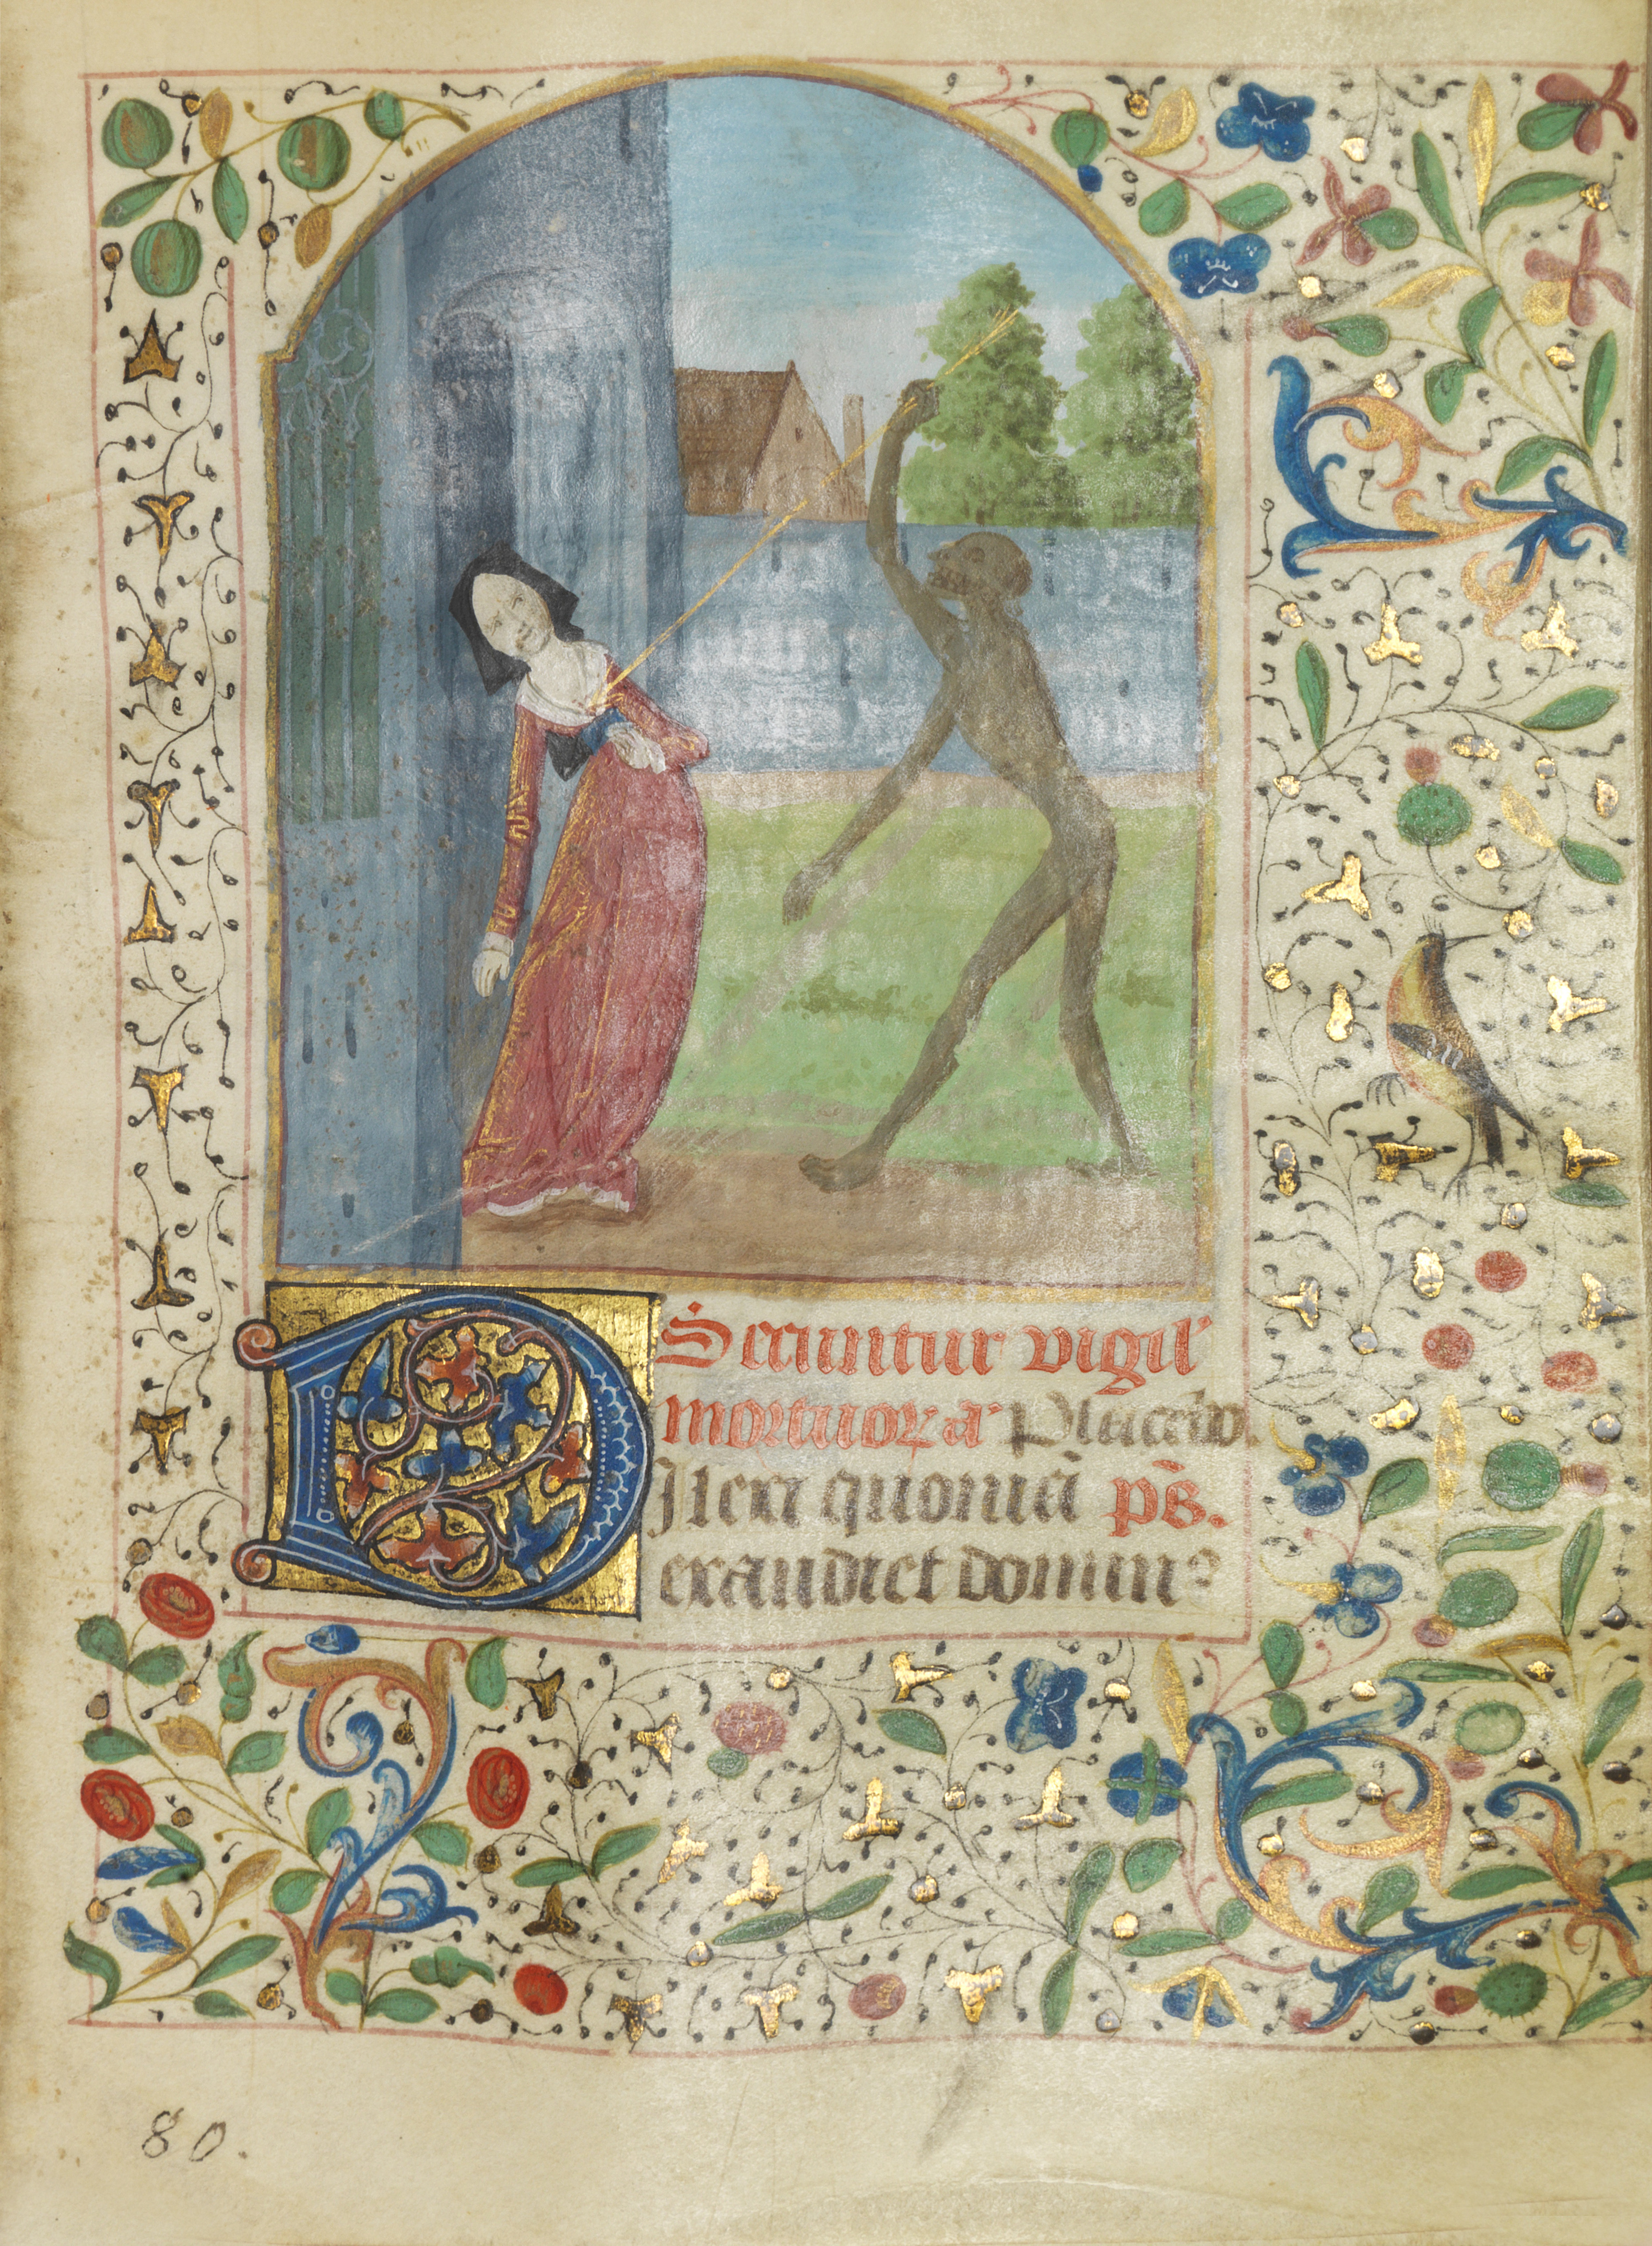 Secuntur vigil'
mortuoꝝ a' Placebo.
Dilexi quoniā p̄s.
exaudiet domin⁹
80.